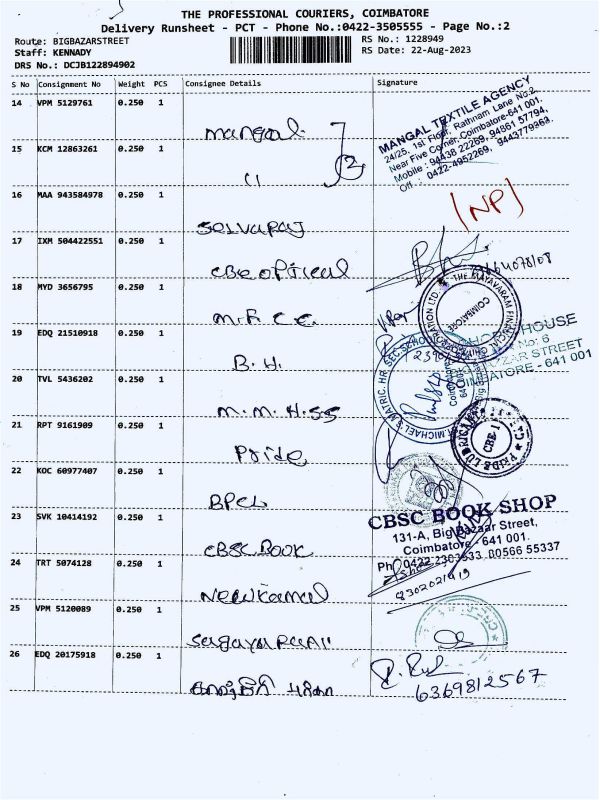 THE PROFESSIONAL COURIERS, COIMBATORE
Delivery Runsheet - PCT - Phone No.:0422-3505555 - Page No.:2
Route: BIGBAZARSTREET
Staff: KENNADY
DRS No.: DCJB122894902
RS No.: 1228949
RS Date: 22-Aug-2023
S No Consignment No Weight PCS Consignee Details Signature
14 VPM 5129761 0.250 1 Mangal
MANGAL TEXTILE AGENCY
24/25, 1st Floor, Rathnam Lane No.2,
Near Five Corner, Coimbatore-641 001.
Mobile : 94438 22269, 94861 57794,
Off : 0422-4952269, 9443779363.
15 KCM 12863261 0.250 1 11
2
16 MAA 943584978 0.250 1 Selvaraj
(NP)
17 IXM 504422551 0.250 1 CBE optical
18 MYD 3656795 0.250 1 M.F.C.C.
THE MAYAVARAM FINANCIAL
CORPORATION LTD.
COIMBATORE
19 EDQ 21510918 0.250 1 B.H.
HOUSE
No: 6
STREET
COIMBATORE - 641 001
20 TVL 5436202 0.250 1 M.M.H.SS
MICHAEL'S MATRIC. HR. SEC. SCHOOL
21 RPT 9161909 0.250 1 Pride
PRIDE LUBRICANTS
CBE-1
22 KOC 60977407 0.250 1 BPCL
23 SVK 10414192 0.250 1 CBSC Book
CBSC BOOK SHOP
131-A, Big Bazaar Street,
Coimbatore - 641 001.
Ph 0422 2303533, 80566 55337
24 TRT 5074128 0.250 1 New Kamal
25 VPM 5120089 0.250 1
26 EDQ 20175918 0.250 1
6369812567